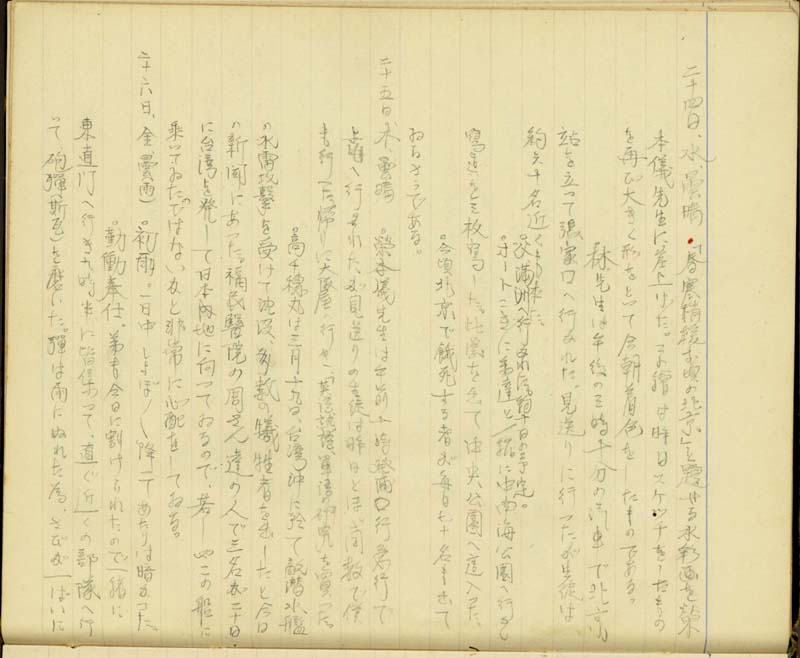 二十四日、水 曇晴 。「春寒猶緩き頃の北京」と題せる水彩画を榮
本儀先生に差上げた。この繪は昨日スケッチをしたもの
を再び大きく形をとって今朝着色をしたものである。
林先生は午後の三時十分の汽車で北京
站を立って張家口へ行かれた。見送りに行ったが生徒は
約六十名近くも来た。
。次満洲へ行かれ
。オートニきに弟達と一緒に中南海公園へ行き
寫真を三枚寫した。を出て中央公園へ這入った。
。今頃北京で餓死する者が毎日七十名も出て
ゐるさうである。
二十五日、木、曇晴 。榮本儀先生は午前十時發浦口行急行で
上海へ行かれたが見送りの生徒は昨日とほゞ同数で僕
も行った。帰りに大阪屋へ行き、軍清の研究を買った。
。高千穂丸は三月十九日、台湾沖に於て敵潜水艦
の水雷攻撃を受けて沈没、多数の犠牲者を出したと今日
の新聞にあった。福民醫院の周さん達の人で三名が二十日
に台湾を発して日本内地に向ってゐるので、若しやこの船に
乗ってゐたのではないかと非常に心配をしてゐる。
二十六日、金、曇雨) 。初雨。一日中しょぼ〳〵降ってあたりは暗かった。
。勤働奉仕。弟も今日に割けられたので一緒に
東直門へ行き九時半に皆集って、直ぐ近くの部隊へ行
って砲彈(斯毛)を磨いた。彈は雨にぬれた為、さびが一ぱいに